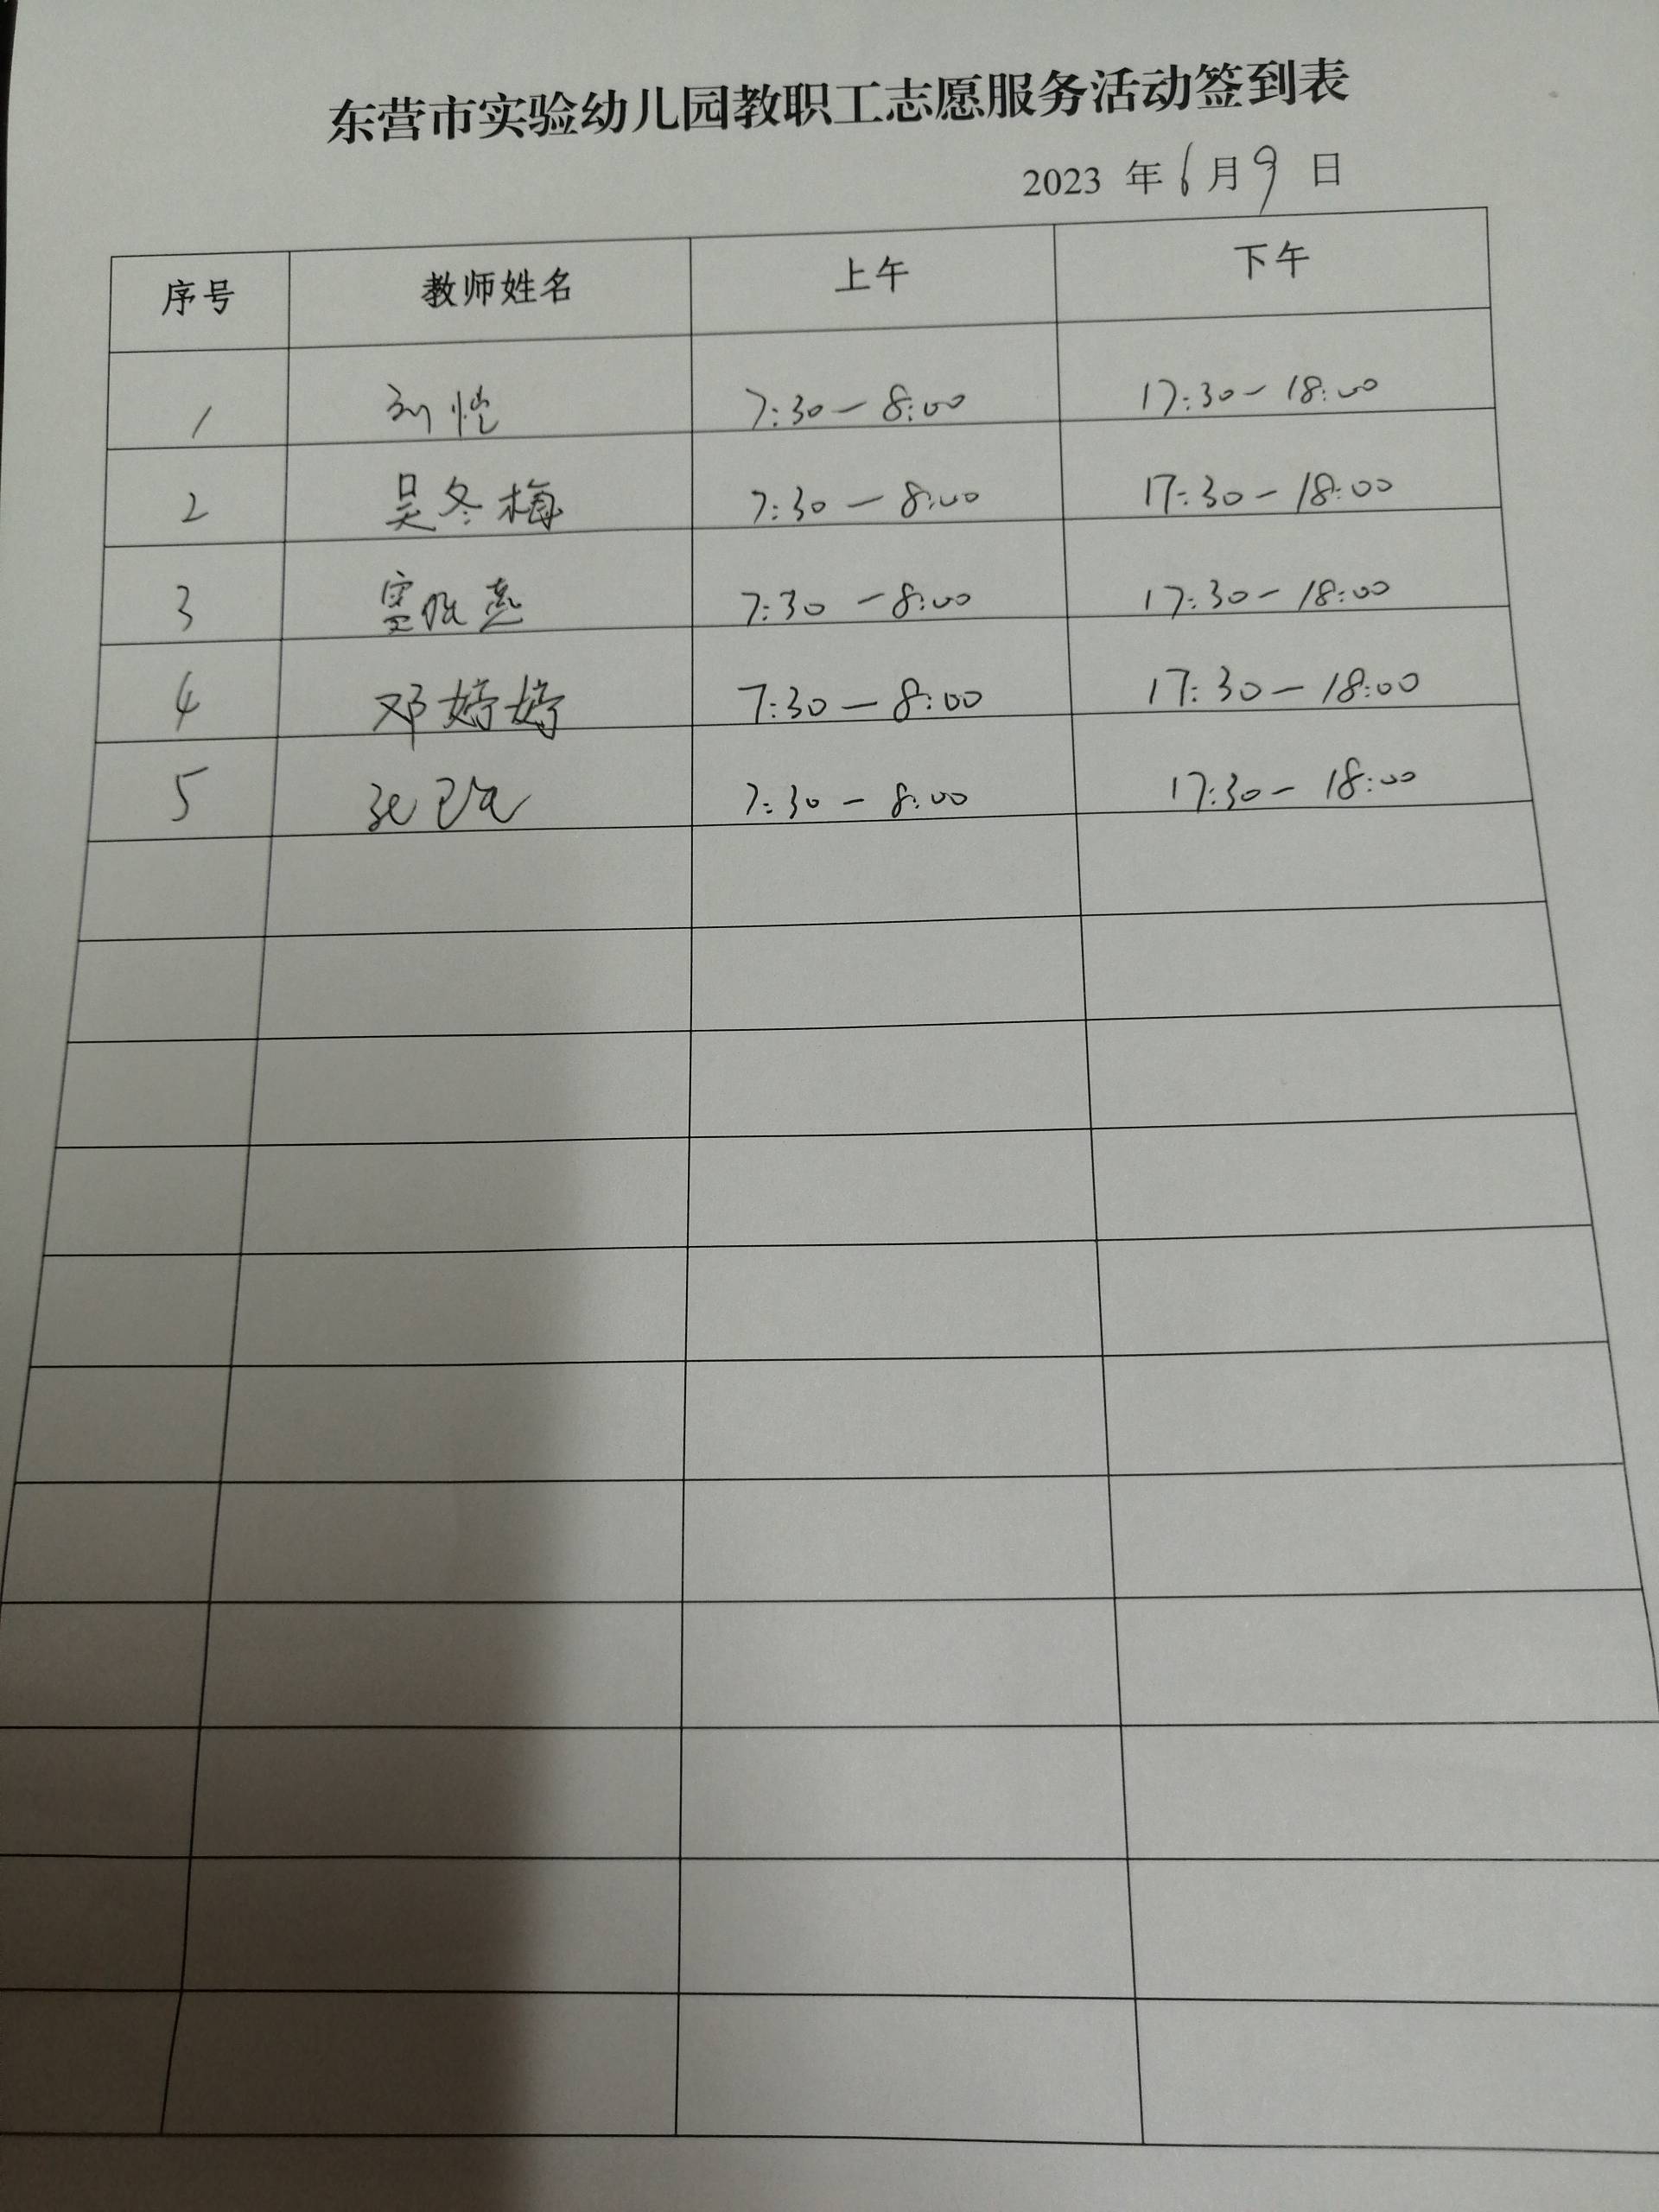 东营市实验幼儿园教职工志愿服务活动签到表
2023 年 6 月 9 日
序号 教师姓名 上午 下午
1 刘恺 7:30-8:00 17:30-18:00
2 吴冬梅 7:30-8:00 17:30-18:00
3 7:30-8:00 17:30-18:00
4 邓婷婷 7:30-8:00 17:30-18:00
5 7:30-8:00 17:30-18:00